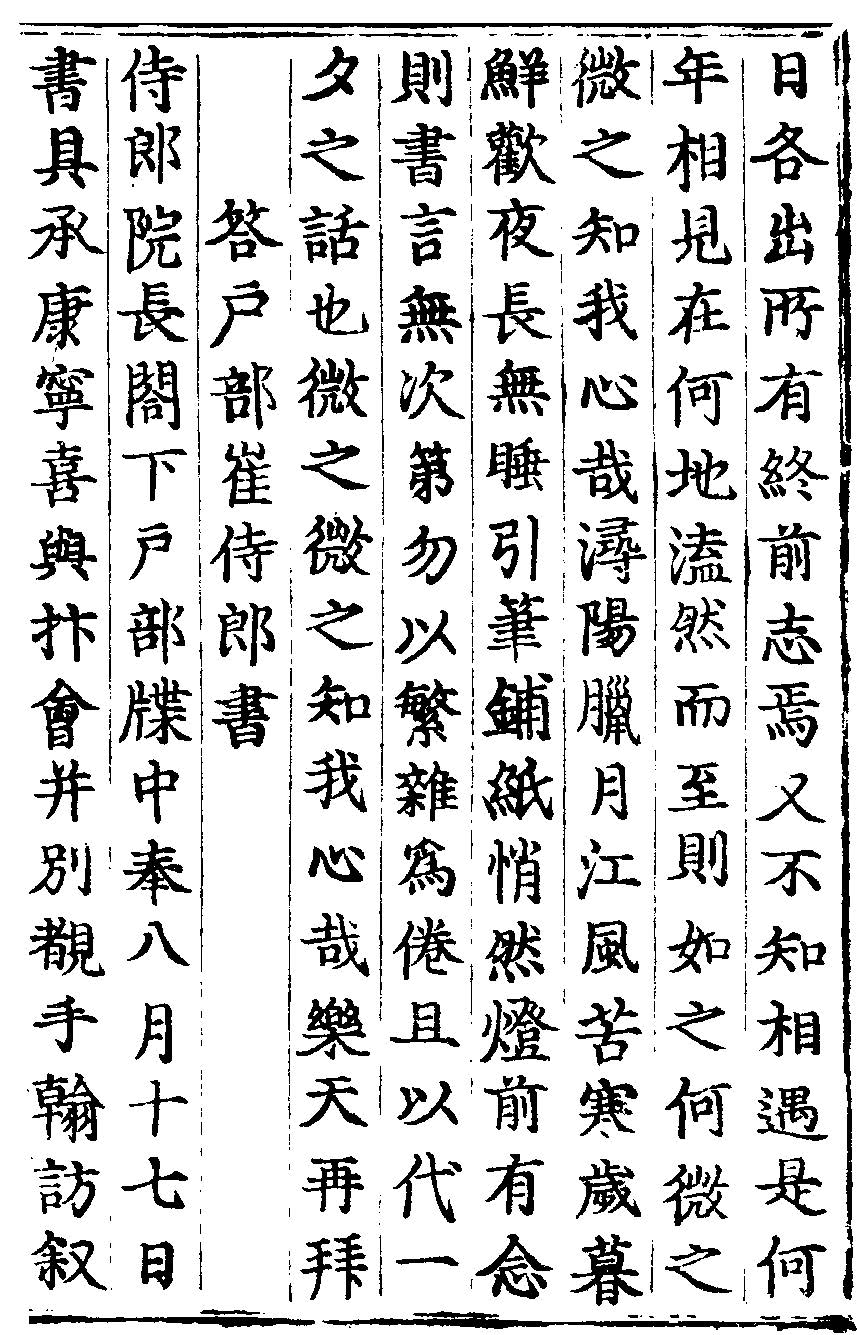 日各出所有終前志焉又不知相遇是何
年相見在何地溘然而至則如之何微之
微之知我心哉潯陽臘月江風苦寒歲暮
鮮歡夜長無睡引筆鋪紙悄然燈前有念
則書言無次第勿以繁雜爲倦且以代一
夕之話也微之微之知我心哉樂天再拜
答戶部崔侍郎書
侍郎院長閤下戶部牒中奉八月十七日
書具承康寧喜與抃會并別覩手翰訪叙